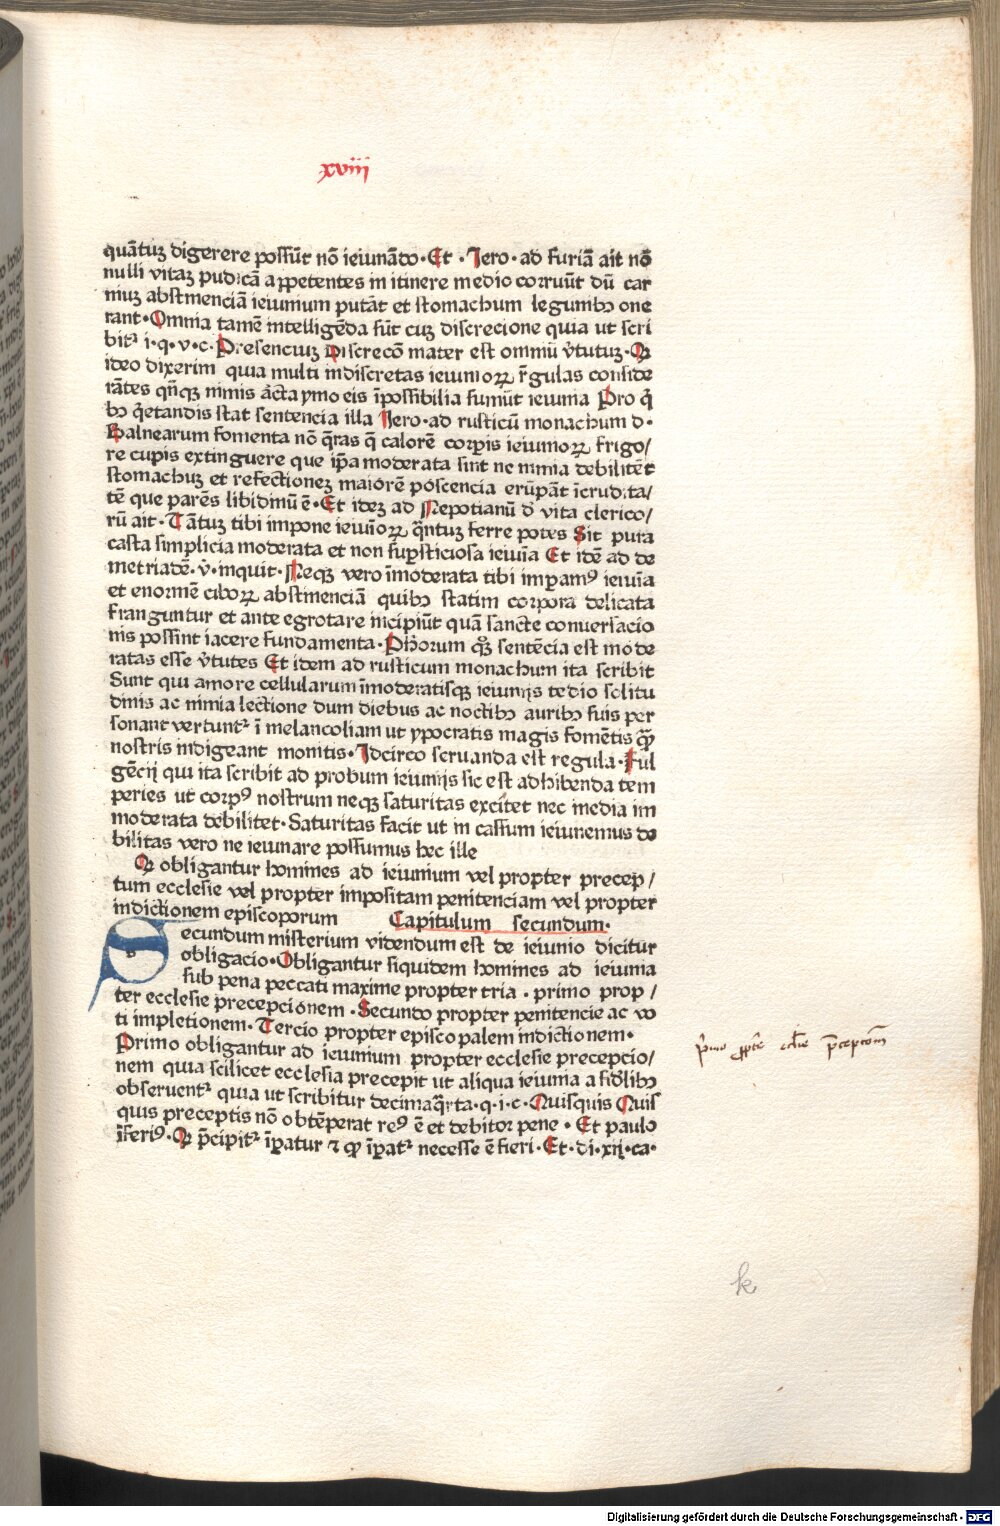 xviii
quãtuʒ digerere possũt nõ ieiunãdo · Et · Jero · ad furiã ait nõ
nulli vitaʒ pudicã appetentes in itinere medio corruũt dũ car
niuʒ abstinenciã ieiunium putãt et stomachum legumibꝫ one
rant · Omnia tamẽ intelligẽda sũt cuʒ discrecione quia ut scri
bit᷑ i · q · v · c · Presenciuʒ Discrecõ mater est omniũ v̾tutuʒ · Qꝫ
ideo dixerim quia multi indiscretas ieiunioꝝ r̃gulas conside
rãtes qñqʒ nimis ãcta ymo eis ĩpossibilia sumũt ieiunia Pro q̃
bꝫ q̃etandis stat sentencia illa Jero · ad rusticũ monachum d ·
Balnearum fomenta nõ q̃ras q̃ calorẽ corꝑis ieiunioꝝ frigo/
re cupis extinguere que ip̃a moderata sint ne nimia debilitẽt
stomachuʒ et refectioneʒ maiorẽ poscencia erũpãt ĩcrudita/
tẽ que parẽs libidinũ ẽ · Et ideʒ ad Nepotianũ d̾ vita clerico/
rũ ait · Tãtuʒ tibi impone ieiuĩoꝝ q̃ntuʒ ferre potes Sit pura
casta simplicia moderata et non suꝑsticiosa ieiuĩa Et idẽ ad de
metriadẽ · v̾ · inquit · Neqʒ vero ĩmoderata tibi imꝑamꝰ ieiuĩa
et enormẽ ciboꝝ abstinenciã quibꝫ statim corpora delicata
franguntur et ante egrotare incipiũt quã sancte conuersacio
nis possint iacere fundamenta · Ph̾orum qͦꝫ sentẽcia est mode
ratas esse v̾tutes Et idem ad rusticum monachum ita scribit
Sunt qui amore cellularum ĩmoderatisqʒ ieiunijs tedio solitu
dinis ac nimia lectione dum diebus ac noctibꝫ auribꝫ suis per
sonant vertunt᷑ ĩ melancoliam ut ypocratis magis fomẽtis qꝫ̃
nostris indigeant monitis · Jdcirco seruanda est regula · Ful
gẽcij qui ita scribit ad probum ieiunijs sic est adhibenda tem
peries ut corpꝰ nostrum neqʒ saturitas excitet nec media im
moderata debilitet · Saturitas facit ut in cassum ieiunemus de
bilitas vero ne ieiunare possumus hec ille
Qꝫ obligantur homines ad ieiunium vel propter precep/
tum ecclesie vel propter impositam penitenciam vel propter
indictionem episcoporum Capitulum secundum ·
Secundum misterium videndum est de ieiunio dicitur
obligacio · Obligantur siquidem homines ad ieiunia
sub pena peccati maxime propter tria · primo prop /
ter ecclesie precepcionem · Secundo propter penitencie ac vo
ti impletionem · Tercio propter episcopalem indictionem ·
Primo obligantur ad ieiunium propter ecclesie precepcio/
nem quia scilicet ecclesia precepit ut aliqua ieiunia a fid̾libꝫ
obseruent᷑ quia ut scribitur decimaq̃rta · q · i · c · Quisquis Quis
quis preceptis nõ obtẽperat reꝰ ẽ et debitor pene · Et paulo
ĩferiꝰ · Qꝫ p̃cipit᷑ ĩꝑatur ⁊ qꝫ ĩꝑat᷑ necesse ẽ fieri · Et · di · xij · ca ·
p̾mo ꝓpt̾ eccl̾ie p̾ceptom̃
k
Digitalisierung gefördert durch die Deutsche Forschungsgemeinschaft · DFG